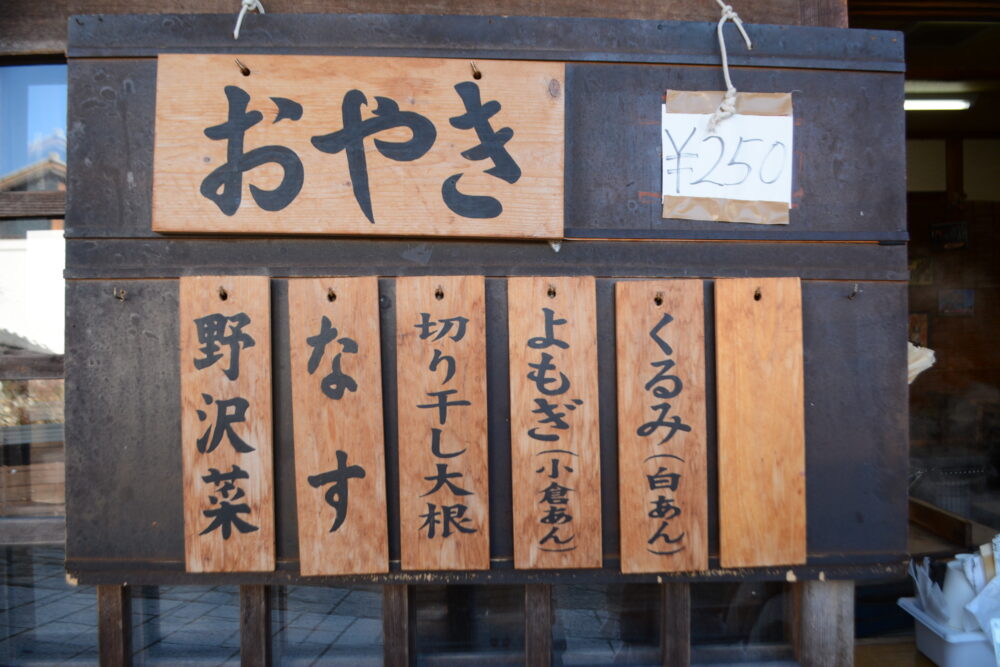 おやき
¥250
野沢菜
なす
切り干し大根
よもぎ(小倉あん)
くるみ(白あん)